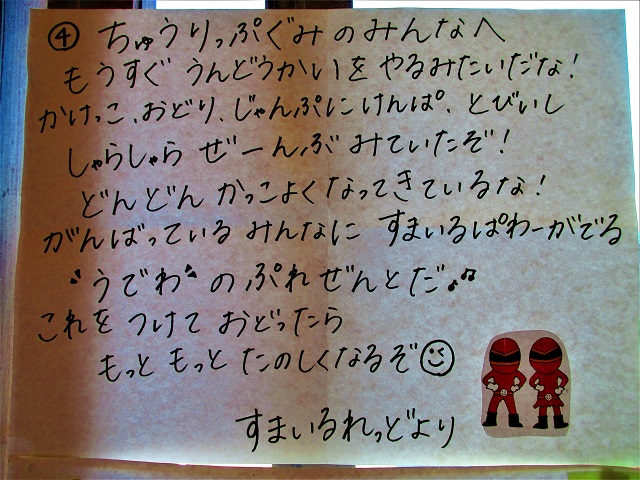 ④ ちゅうりっぷぐみのみんなへ
もうすぐ うんどうかいを やるみたいだな！
かけっこ、おどり、じゃんぷにけんぱ、とびいし
しゃらしゃら ぜーんぶ みていたぞ！
どんどん かっこよくなってきているな！
がんばっている みんなに すまいるぱわーがでる
"うでわ" の ぷれぜんとだ♪♫
これを つけて おどったら
もっと もっと たのしくなるぞ
すまいるれっどより